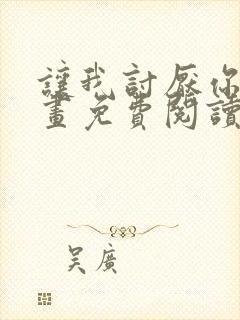 讓我討厭你
畫免費閱讀
吳廣